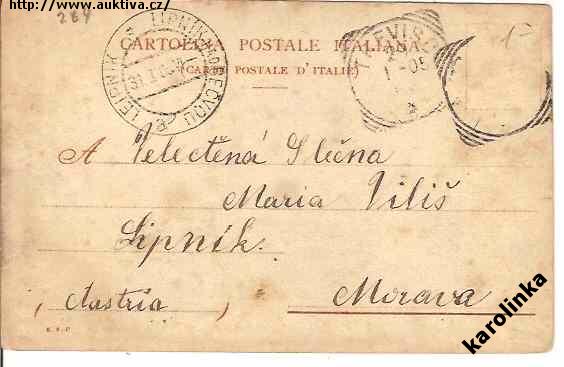 http://www.auktiva.cz/
284
CARTOLINA POSTALE ITALIANA
(CARTE POSTALE D'ITALIE)
LEIPNIK
LIPNÍK
BEČVOU
31
TREVIS
05
A Velectěná Slečna
Maria Viliš
Lipník.
(Austria)
Morava
karolinka